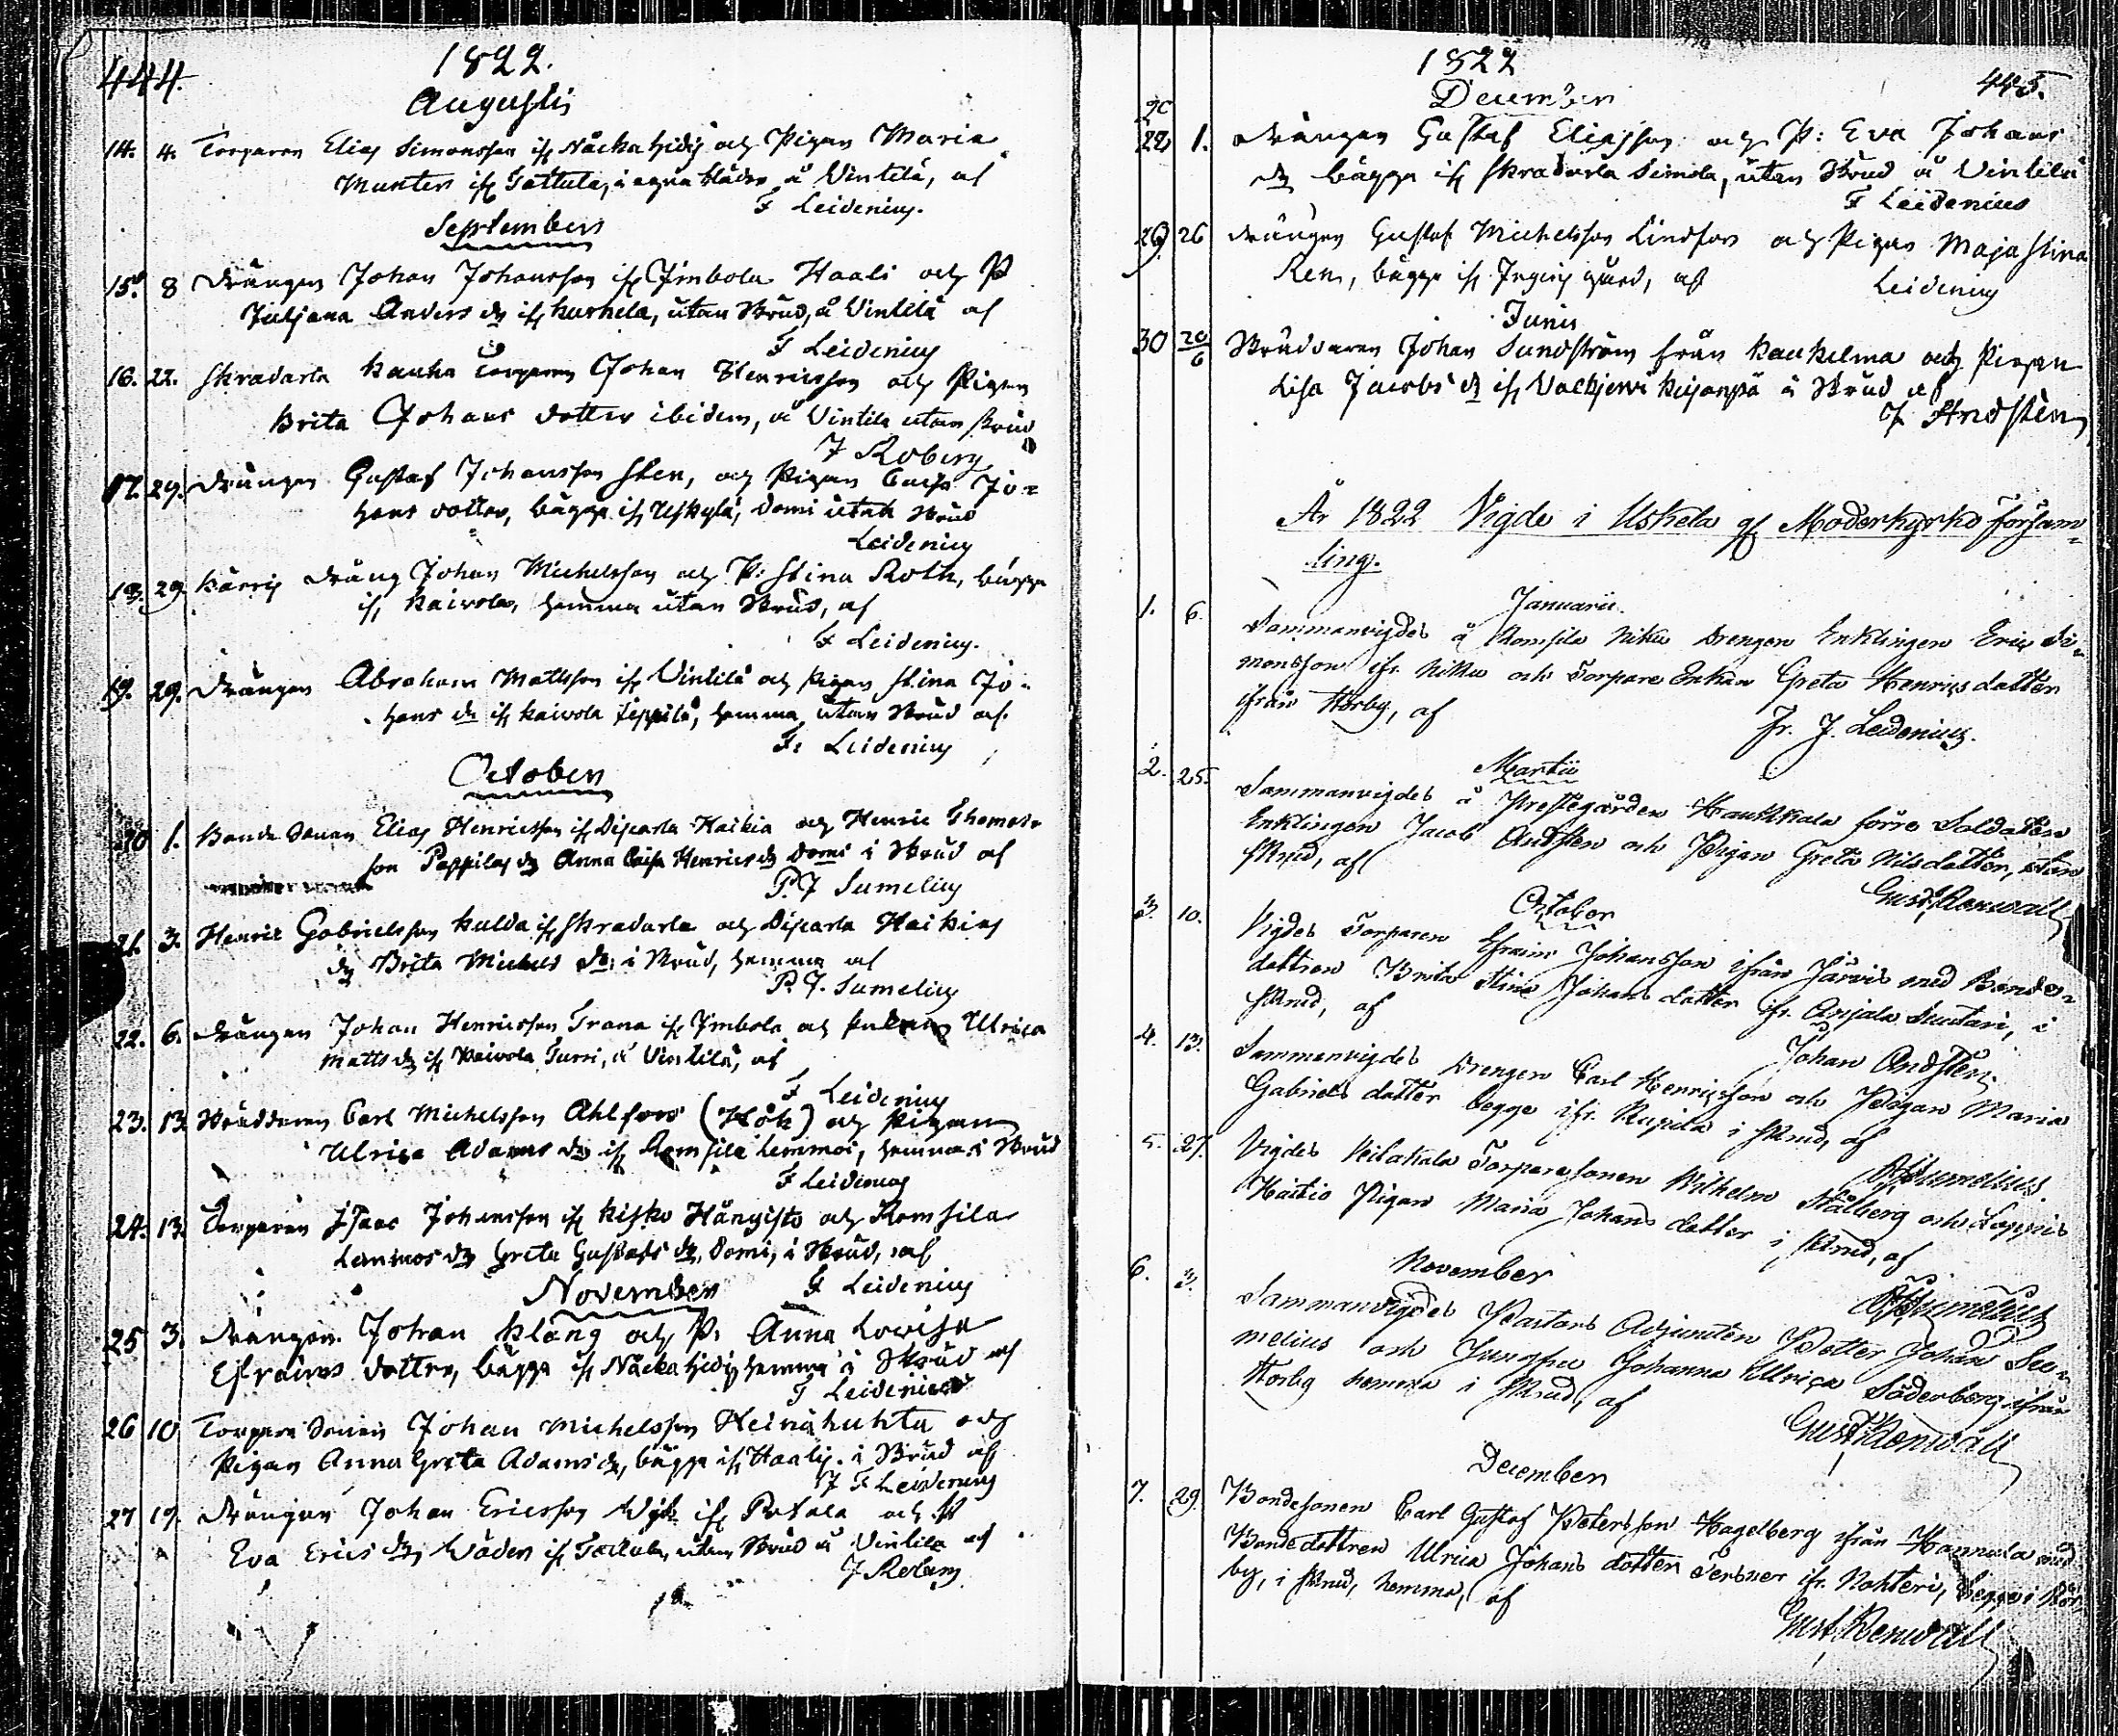 444.
1822.
Augusti
14. 4. Torparen Elias Simonsson ifr Näckahidis och Pigan Maria
Munter ifr Tattula, i egna kläder å Vintilä, af
F Leidenius.
Septembers
15. 8 Drängen Johan Johansson ifr Jmbola Haali och P
Juljana Anders dr ifr kurkela, utan Skrud, å Vintilä af
F Leidenius
16. 22. Skradarla kauka Torparen Johan Henricsson och Pigan
Brita Johans dotter ibidem, å Vintila utan skrud
J Roberg
17. 29. Drängen Gustaf Johansson Sten, och Pigan Caisa Jo=
hans dotter, bägge ifr , domi utan Skrud
Leidenius
18. 29 kärris Dräng Johan Michelsson och P: Stina Roth, bägge
ifr kaivola, hemma utan Skrud, af
F Leidenius.
19. 29. Drängen Abraham Mattsson ifr Vintilä och Pigan Stina Jo-
hans dr ifr kaivola , hemma utan Skrud af.
F. Leidenius
October
20 1. Bonde Sonen Elias Henricsson ifr Diskarla Haikia och Henric Thomas
son Pappilas dr Anna Caisa Henrics dr Domi i Skrud af
P.J Sumelius
21. 3. Henric Gabrielsson kulda ifr Skradarla och Diskarla Haikias
dr Brita Michels dr i Skrud, hemma af
P.J. Sumelius
22. 6. Drängen Johan Henricsson Trana ifr Jmbola och Ulrica
Matts dr ifr kaivola Turri, å Vintilä, af
F Leidenius
23. 13 Skräddaren Carl Michelsson Ahlfors (Hök) och Pigan
Ulrica Adams dr ifr Romsila Lemmoi, hemma i Skrud
F Leidenius
24. 13 Torparen Isaac Johansson ifr kisko Hångisto och Romsila
Lemmos dr Greta Gustafs dr, Domi, i Skrud, af
F Leidenius
November
25 3. Drängen Johan klång och P. Anna Lovisa
Efraims dotter, bägge ifr Näckahidis hemma i Skrud af
F Leidenius
26 10 Torpare Sonen Johan Michelsson Heinähuhta och
Pigan Anna Greta Adams dr, bägge ifr Haalis i Skrud af
F Leidenius
27 17. Drängen Johan Ericsson ifr Pertala och P
Eva Erics dr ifr Tattula, utan Skrud å Vintila af
J Roberg
1822
445.
December
28 1. Drängen Gustaf Eliasson och P: Eva Johans
dr bägge ifr Skradarla Simola, utan Skrud å Vintilä
F Leidenius
29 26 Drängen Gustaf Michelsson Lindfors och Pigan Maja Stina
Ren, bägge ifr Ingeris gård, af
Leidenius
Junii
30 20/6 Skräddaren Johan Sundström från kaukelma och Pigan
Lisa Jacobs dr ifr Valkjervi i Skrud af
J Andstén
År 1822 Vigde i Uskela gf Moderkyrko församling.
Januarii
1. 6. Sammanvigdes å Romsila Niku Drengen Enklingen Eric Si=
monsson ifr. Niku och Torpare Enkan Greta Henrics dotter
ifrån Horby, af
Fr. J. Leidenius.
Martii
2. 25. Sammanvigdes å Prestegården Haukkala förre Soldaten
Enklingen Jacob Andsten och Pigan Greta Nils dotter, utan
skrud, af
Gust Renwall
October
3. 10. Vigdes Torparen Efraim Johansson ifrån Järvis med Bonde=
dottren Brita Stina Johans dotter ifr. Anjala Suutari, i
skrud, af
Johan Andsten
4. 13. Sammanvigdes Drengen Carl Henricsson och Pigan Maria
Gabriels dotter begge ifr. Rupila i skrud, af
PJ Sumelius.
5. 27. Vigdes Torparesonen Wilhelm Stålberg och
Haikio Pigan Maria Johans dotter i skrud, af
PJ Sumelius
November
6. 3. Sammanvigdes Pastors Adjuncten Petter Johan Su=
melius och Jungfru Johanna Ullrica Söderberg ifrån
Horby hemma i skrud, af
Gust Renwall
December
7. 29. Bondesonen Carl Gustaf Petersson Hagelberg ifrån Hannula med
Bondedottren Ulrica Johans dotter ifr. Nohteri, begge i
by, i skrud, hemma, af
Gust Renwall